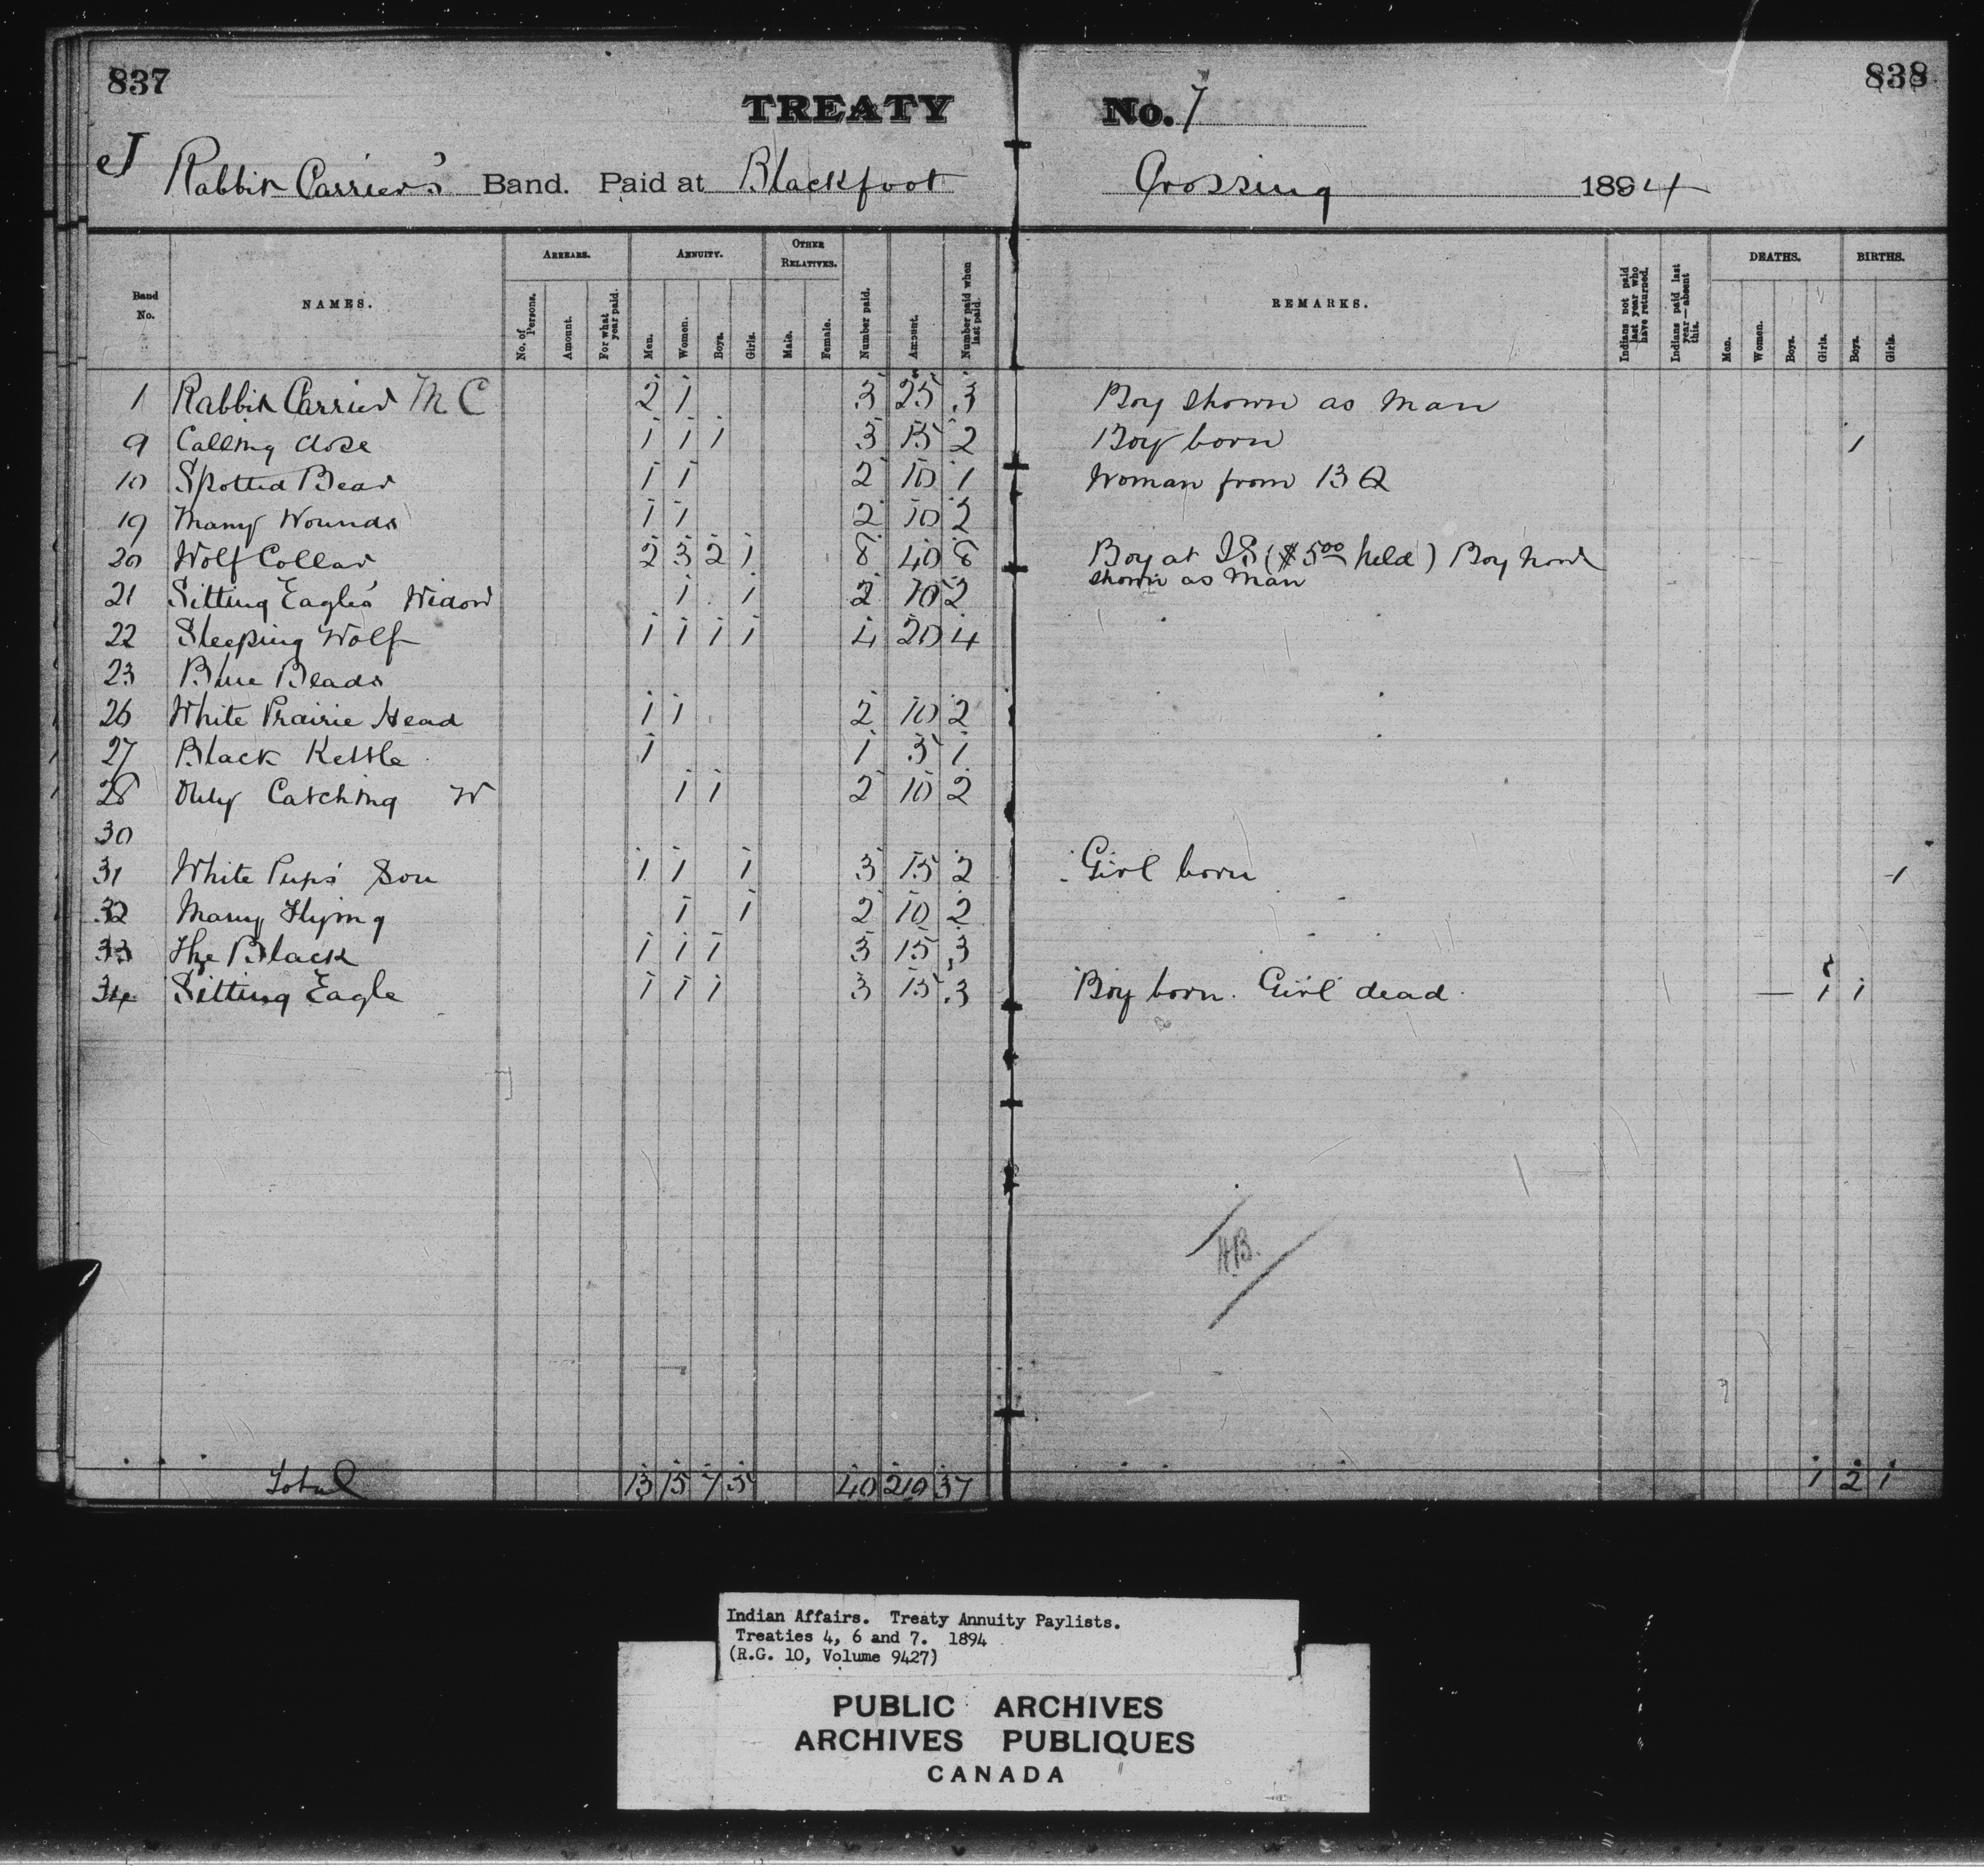 837
838
TREATY No. 7
J Rabbit Carrier's Band. Paid at Blackfoot Crossing 1894
Band No. NAMES. ARREARS. No. of Persons. Amount. For what year paid. ANNUITY. Men. Women. Boys. Girls. OTHER RELATIVES. Male. Female. Number paid. Amount. Number paid when last paid. REMARKS. Indians not paid last year who have returned. Indians paid last year—absent this. DEATHS. Men. Women. Boys. Girls. BIRTHS. Boys. Girls.
1 Rabbit Carrier M C 2 1 3 25 3 Boy shown as man
9 Calling close 1 1 1 3 15 2 Boy born 1
10 Spotted Bear 1 1 2 10 1 Woman from 13 Q
19 Many Wounds 1 1 2 10 2
20 Wolf Collar 2 3 2 1 8 40 8 Boy at I S ($5.00 held) Boy now
shown as Man
21 Sitting Eagle's Widow 1 1 2 10 2
22 Sleeping Wolf 1 1 1 1 4 20 4
23 Blue Beads
26 White Prairie Head 1 1 2 10 2
27 Black Kettle 1 1 5 1
28 Only Catching W 1 1 2 10 2
30
31 White Pup's Son 1 1 1 3 15 2 Girl born 1
32 Many Flying 1 1 2 10 2
33 The Black 1 1 1 3 15 3
34 Sitting Eagle 1 1 1 3 15 3 Boy born. Girl dead. 1 1
HB.
Total 13 15 7 5 40 210 37 1 2 1
Indian Affairs. Treaty Annuity Paylists.
Treaties 4, 6 and 7. 1894
(R.G. 10, Volume 9427)
PUBLIC ARCHIVES
ARCHIVES PUBLIQUES
CANADA